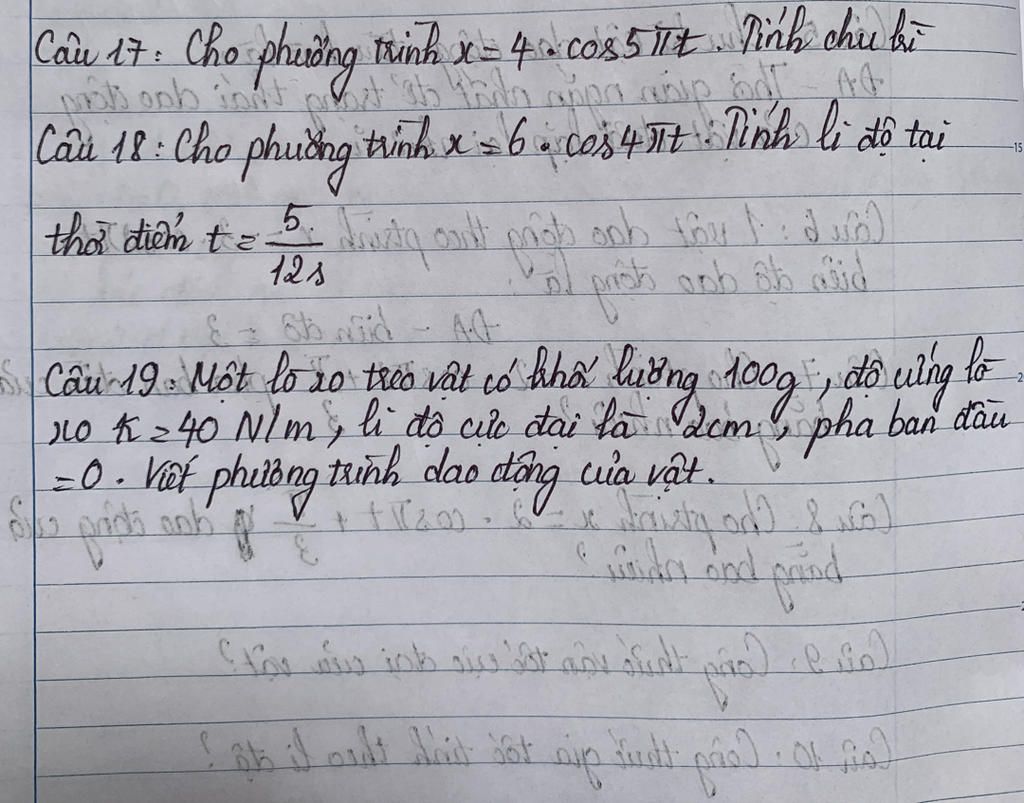 Câu 17: Cho phương trình x = 4 . cos5πt. Tính chu kì
Câu 18: Cho phương trình x = 6 . cos4πt. Tính li độ tại
thời điểm t = 5/12s
Câu 19: Một lò xo treo vật có khối lượng 100g, độ cứng lò
xo K = 40 N/m, li độ cực đại là 2cm, pha ban đầu
= 0. Viết phương trình dao động của vật.